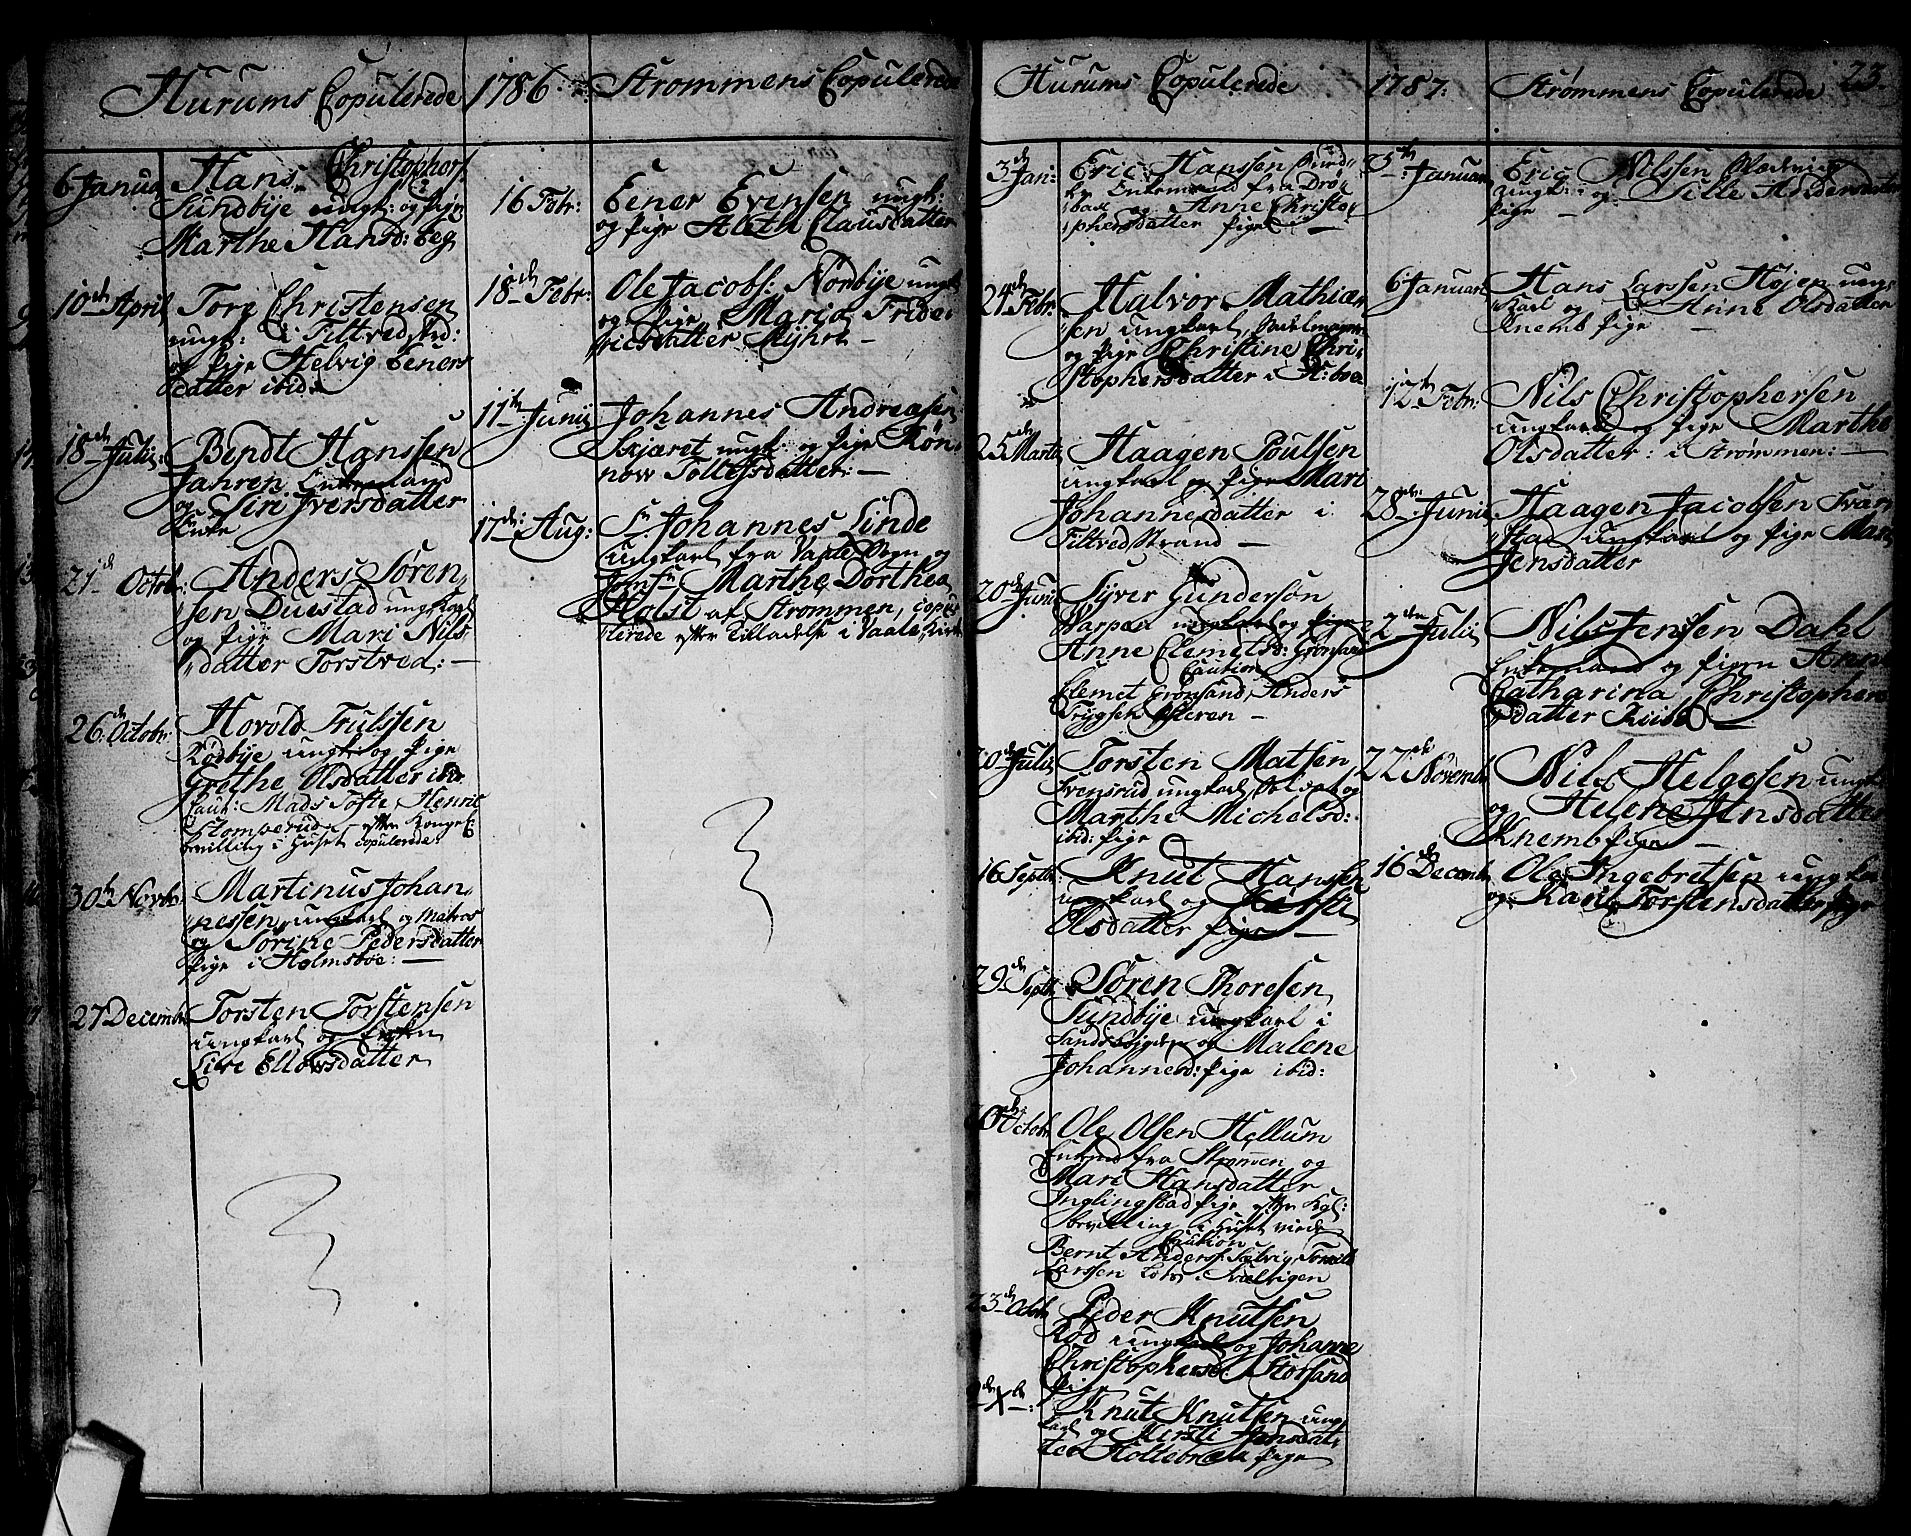 Hurums Copulerede
1786
Strømmens Copulerede
6 Janua
Hans Christophers
Sundbye ungk: og Pige
Marthe Hansd: Eeg
10de April
Tore Christensen
ungk: i Tiltvedstrd:
og Pige Helvig Eeners
datter ibid
18de Julii:
Bendt Hanssen
Jahren Enkemand
og Siri Iversdatter
Enke
21de Octobr:
Anders Søren
sen Duestad ungkarl
og Pige Mari Nils
datter Torstved: —
26de Octobr:
Hovold Trulssen
Rødbye ungk: og Pige
Grethe Olsdatter ibid
Caut: Mads Tofte, Henric
Klomperud, efter Kongel:
bevilling i Huset copulerede
30te Novbr
Martinus Johan
nessen, ungkarl og Matros
og Sørine Pedersdatter
Pige i Holmsboe: —
27 Decembr
Torsten Torstensen
ungkarl og
Siri Ellowsdatter
16 Febr:
Eener Evensen ungk:
og Pige Aleth Clausdatter
18de Febr:
Ole Jacobs: Nordbye ungk
og Pige Maria Fride
ricsdatter Myhre —
11te Junij
Johannes Andreasen
Skjæret ungk: og Pige Røn
now Tollefsdatter: —
17de: Aug:
Sr. Johannes Linde
ungkarl fra Vaale Sogn og
Jomfr Marthe Dorthea
Holst af Strømmen, copu
lerede efter Tilladelse i Vaale Kirke
Hurums Copulerede
1787:
Strømmens Copulerede
23.
3de Jan:
Eric Hanssen Sund
by Enkemand fra Drø
bak og Anne Christo
phersdatter Pige —
24de Febr:
Halvor Mathia
sen ungkarl,
og Pige Christine Chri
stophersdatter i H:boe
25de Marti
Haagen Poulsen
ungkarl og Pige Mari
Johannesdatter i
Tiltved Strand —
20de Junii
Syver Gundersøn
Varpen ungkarl og Pige
Anne Clemetsd: Grønsand
Caution
Clemet Grønsand, Anders
Trygsek Østeren —
20de Julii
Torsten Matsen
Svensrud ungkarl, og
Marthe Michelsd:
ibid: Pige
16 Septbr:
Knut Hanssen
ungkarl og Kersti
Olsdatter Pige —
29de Septbr
Søren Thoresen
Sundbye ungkarl i
og Malene
Johannesd: Pige ibid:
Octobr
Ole Olsen Hellum
fra Strømmen og
Mari Hansdatter
Inglingstad Pige efter Kgl:
bevilling i Huset viede
Caution
Bernt Anders: Selvig, Tomas
Larssen
23de Octbr
Peder Knutsen
Rød ungkarl og Johanne
Christophersd: Storsand
Pige
Xbr:
Knut Knutsen ung
karl og Kersti Hansdat
ter Holtebræk Pige
5te Januari
Eric Nilssen
ungk: og Sille Andersdatter
Pige —
6 Januari
Hans Larssen Højen ung
karl og Anne Olsdatter
Knemb Pige —
12te Febr:
Nils Christophersen
ungkarl og Pige Marthe
Olsdatter: i Strømmen: —
28de: Junii
Haagen Jacobsen Tvær
stad ungkarl og Pige Mari
Jensdatter
2den Julii
Nils Jenssen Dahl
Enkemand og Pigen Anne
Catharina Christopher
sdatter
22de Novembr
Nils Helgesen ungk
og Helene Jensdatter
Knemb Pige —
16de Decembr
Ole Ingebretsen ungka
og Kari Torstensdatter Pige